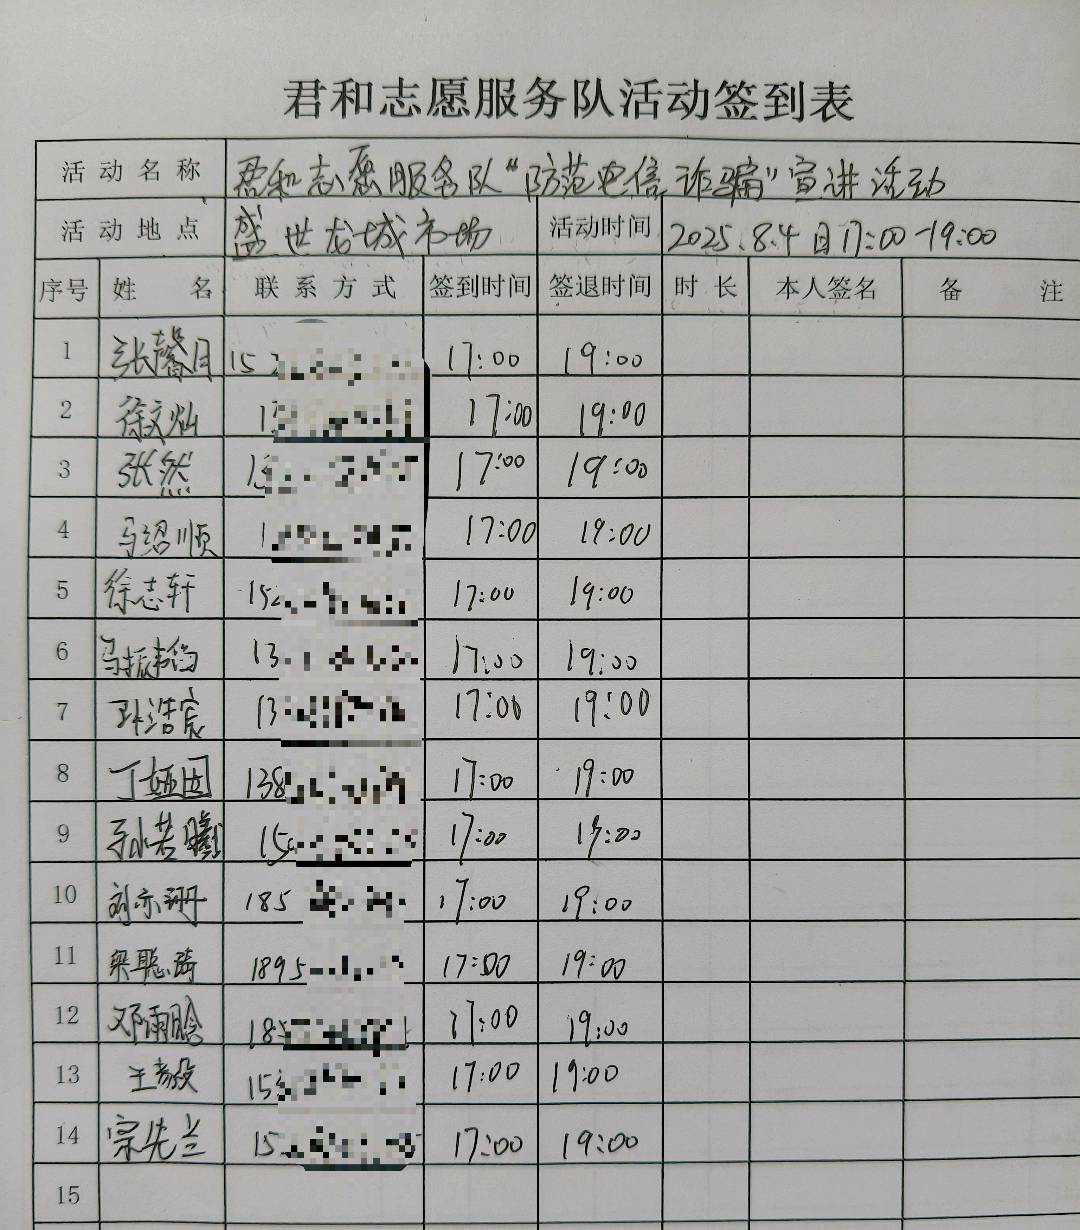 君和志愿服务队活动签到表
活动名称 君和志愿服务队“防范电信诈骗”宣讲活动
活动地点 盛世龙城市场 活动时间 2025.8.4日17:00-19:00
序号 姓名 联系方式 签到时间 签退时间 时长 本人签名 备注
1 张馨月 15 17:00 19:00
2 徐文灿 1 17:00 19:00
3 张然 15 17:00 19:00
4 马绍顺 1 17:00 19:00
5 徐志轩 152 17:00 19:00
6 马振 13 17:00 19:00
7 孙浩宸 13 17:00 19:00
8 丁娅因 138 17:00 19:00
9 若曦 15 17:00 19:00
10 刘亦珊 185 17:00 19:00
11 梁聪琦 1895 17:00 19:00
12 邓雨晗 185 17:00 19:00
13 王毅 15 17:00 19:00
14 宗先兰 15 17:00 19:00
15